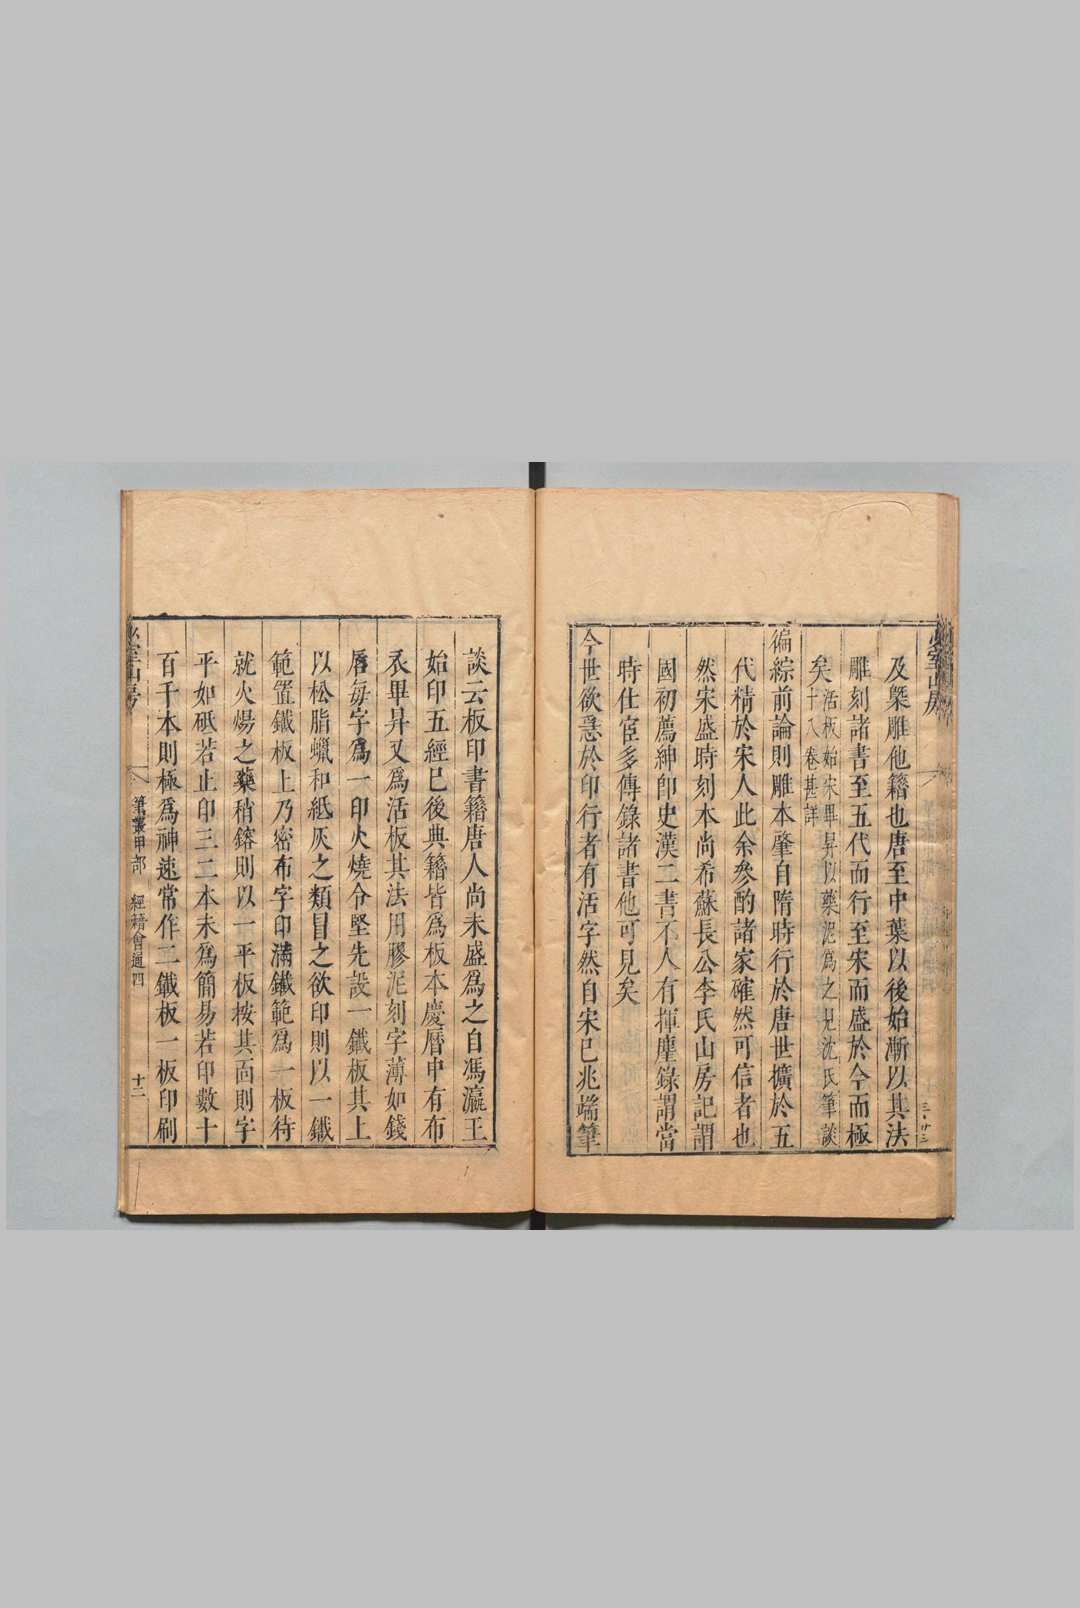 及槩雕他籍也唐至中葉以後始漸以其法
雕刻諸書至五代而行至宋而盛於今而極
矣
活板始宋畢昇以藥泥為之見沈氏筆談
十八卷甚詳
徧綜前論則雕本肇自隋時行於唐世擴於五
代精於宋人此余參酌諸家確然可信者也
然宋盛時刻本尚希蘇長公李氏山房記謂
國初薦紳卽史漢二書不人有揮麈錄謂當
時仕宦多傳錄諸書他可見矣
今世欲急於印行者有活字然自宋已兆端筆
談云板印書籍唐人尚未盛爲之自馮瀛王
始印五經已後典籍皆爲板本慶曆中有布
衣畢昇又爲活板其法用膠泥刻字薄如錢
唇每字爲一印火燒令堅先設一鐵板其上
以松脂蠟和紙灰之類冒之欲印則以一鐵
範置鐵板上乃密布字印滿鐵範爲一板待
就火煬之藥稍鎔則以一平板按其面則字
平如砥若止印三二本未爲簡易若印數十
百千本則極爲神速常作二鐵板一板印刷
筆叢甲部 經籍會通四 十二